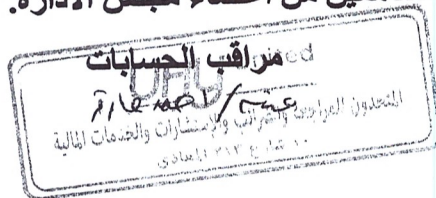 من أعضاء مجلس الادارة.
مراقب الحسابات
UHG United
المتحدون للمراجعة والضرائب والإستشارات والخدمات المالية
١٠ شارع ٢١٣ المعادي